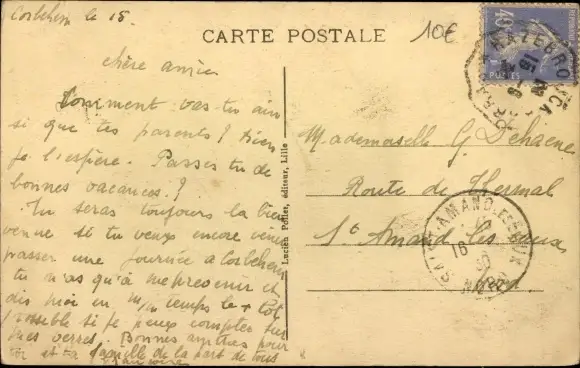 Corbehem le 18.
CARTE POSTALE
10€
chère amie
Comment vas tu ainsi
si que tes parents? bien
je l'espère. Passes tu de
bonnes vacances?
Tu seras toujours la bien
venue si tu veux encore venir
passer une journée à Corbehem
tu n'as qu'à me prevenir et
dis moi en m/m temps le + tôt
possible si je peux compter sur
mes verres. Bonnes amitiés pour
toi et ta famille de la part de tous
Lucien Pollet, éditeur, Lille
Mademoiselle G. Dehaene
Route de Thermal
St Amand les eaux
Nord
HAZEBROUCK
ARRAS
15
SAINT-AMAND-LES-EAUX
16
NORD
POSTES